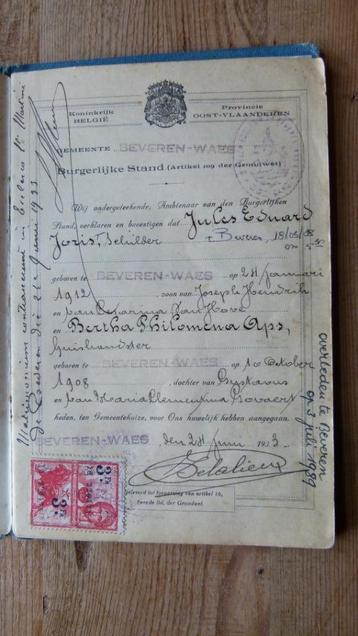 Koninkrijk
BELGIË
Provincie
OOST-VLAANDEREN
GEMEENTE BEVEREN-WAES
Burgerlijke Stand (Artikel 109 der Grondwet)
Wij ondergeteekende, Ambtenaar van den Burgerlijken
Stand, verklaren en bevestigen dat Jules Eduard
Joris, Schilder
Beveren,
geboren te BEVEREN-WAES op 24 januari
1912 zoon van Joseph Hendrik
en van Van Hove
en Bertha Philomena Aps,
huishoudster
geboren te BEVEREN-WAES op 10 October
1908 dochter van Gustavus
en van Maria Clementina Bovaert
heden, ten Gemeentehuize, voor Ons huwelijk hebben aangegaan.
BEVEREN-WAES den 24 juni 1933.
Afgeleverd tot toepassing van artikel 16,
tweede lid, der Grondwet.
3 Fr
3 Fr
Matrimonium contraxerunt in Ecclesia St Martini
de Beveren die 24 juni 1933
overleden te Beveren
op 3 juli 1989